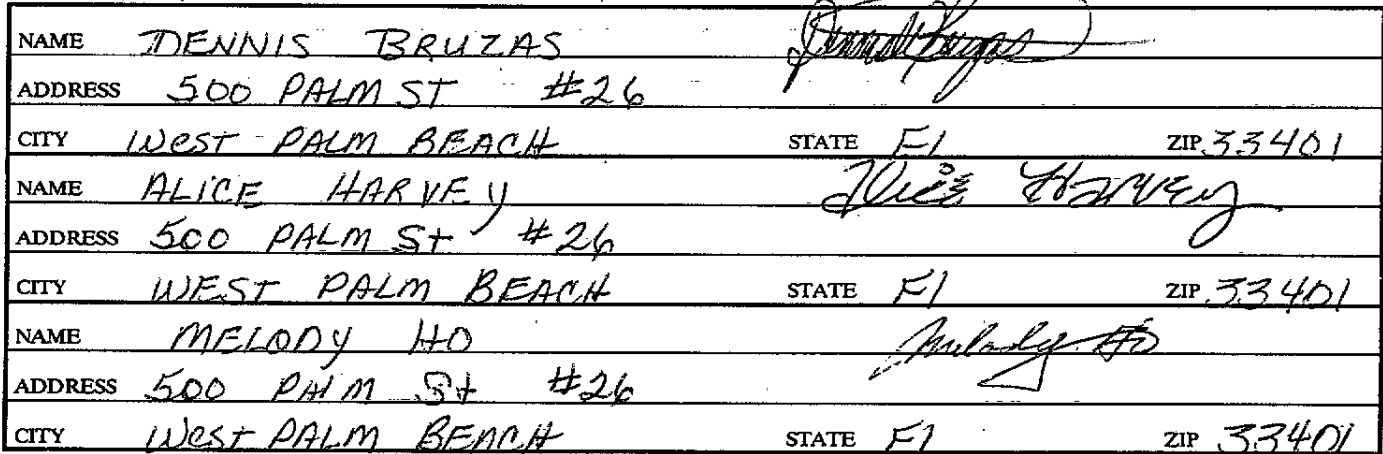 NAME DENNIS BRUZAS Dennis Bruzas
ADDRESS 500 PALM ST #26
CITY West PALM BEACH STATE Fl ZIP 33401
NAME ALICE HARVEY Alice Harvey
ADDRESS 500 PALM St #26
CITY WEST PALM BEACH STATE Fl ZIP 33401
NAME MELODY HO Melody Ho
ADDRESS 500 PALM St #26
CITY West PALM BEACH STATE Fl ZIP 33401